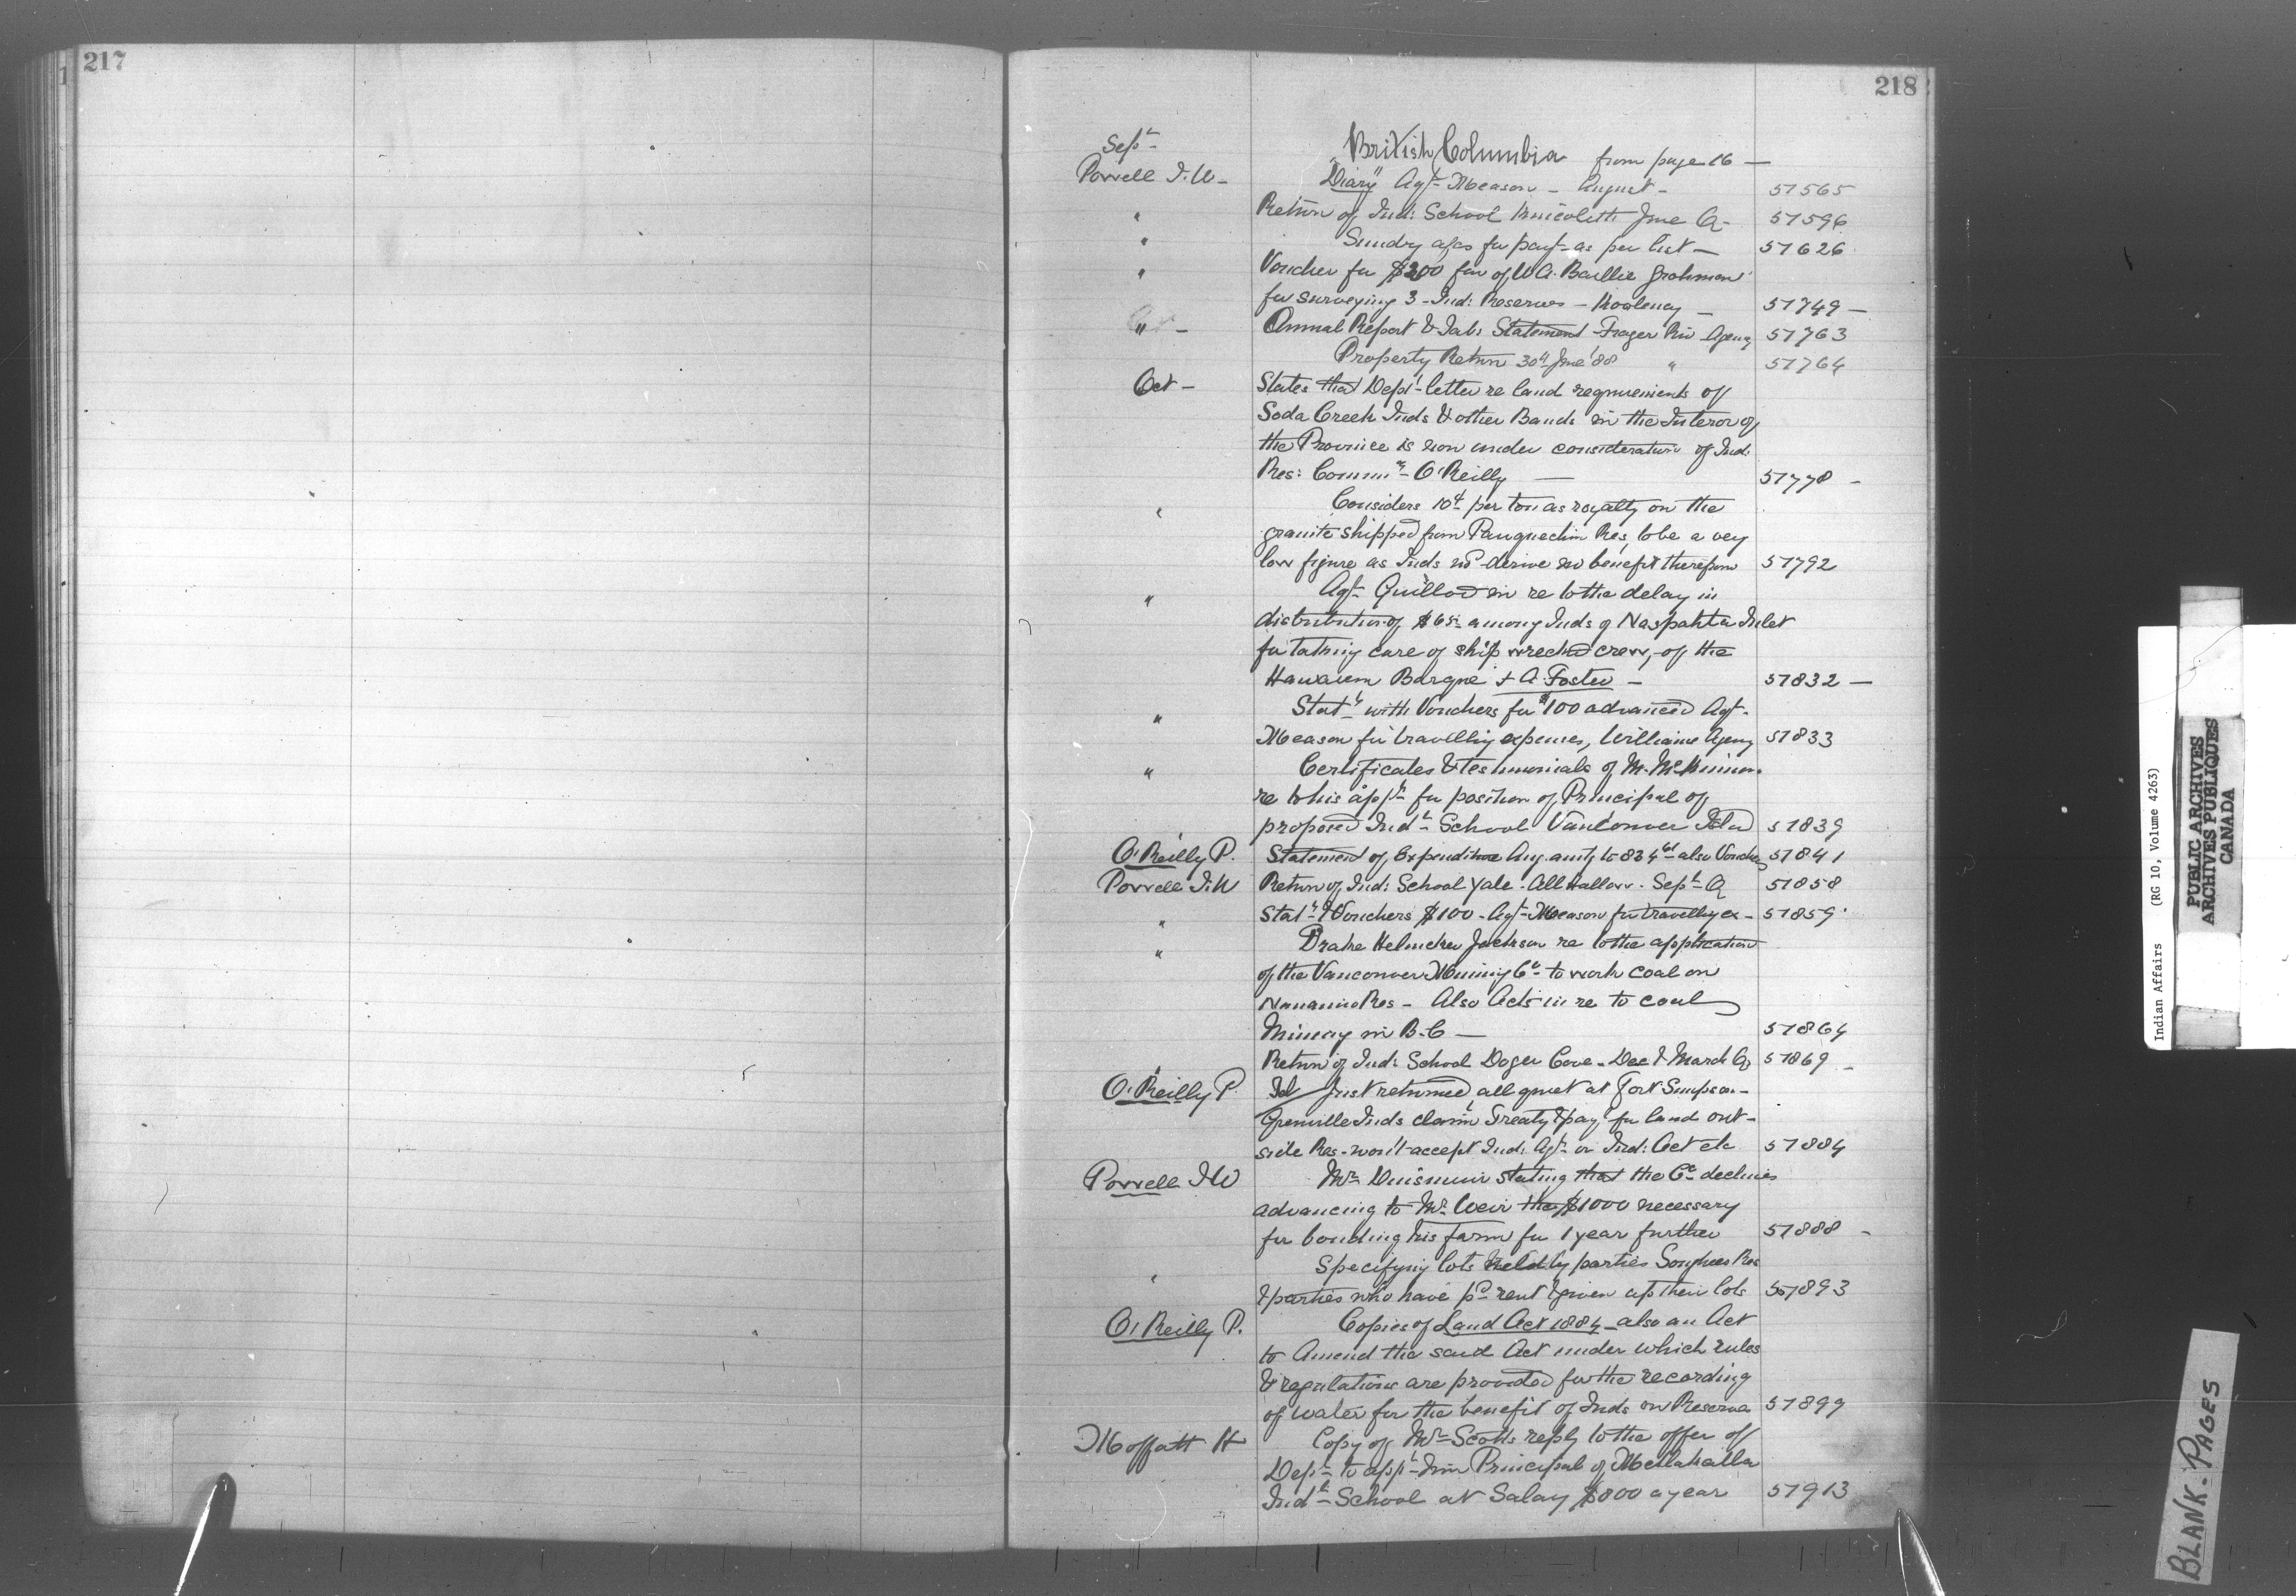 217
218
Sept
British Columbia from page 16 —
Powell I.W — "Diary" Agt Meason — August — 51565
" Return of Ind: School June Q — 51596
" Sundry a/cs for payt as per list — 51626
" Voucher for $200 fav of W A. Baillie Grohman
for surveying 3 Ind: Reserves — Kootenay — 51749 —
" — Annual Report & Tab: Statement Frazer Riv Agency 51763
Property Return 30th June '88 " 51764
Oct — States that Dept letter re land requirements of
Soda Creek Inds & other Bands in the Interior of
the Province is now under consideration of Ind:
Res: Commr O'Reilly — 51778 —
" Considers 10¢ per ton as royalty on the
granite shipped from Res, to be a very
low figure as Inds wd derive no benefit therefrom 51792
" Agt Guillod in re to the delay in
distribution of $65 among Inds of Inlet
for taking care of ship wrecked crew, of the
Barque + A. Foster — 51832 —
" Statt with Vouchers for $100 advanced Agt
Meason for travelling expenses, Williams Agency 51833
" Certificates & testimonials of M. McKinnon
re to his appn for position of Principal of
proposed Indl School Vancouver Isld 51839
O'Reilly P. Statement of Expenditure Aug. amtg to 834 also Vouchers 51841
Powell I.W Return of Ind: School Yale. All Hallow. Sept Q 51858
" Statt & Vouchers $100. Agt Meason for travellg ex — 51859
" Drake Helmcken Jackson re to the application
of the Vancouver Mining Co to work coal on
Nanaimo Res — Also Acts in re to coal
Mining in B.C — 51864
" Return of Ind: School Cove — Dec & March Qs 51869 —
O'Reilly P. Tel Just returned, all quiet at Fort Simpson —
Greenville Inds claim Treaty & payt for land out-
side Res — won't accept Ind: Agt or Ind: Act etc 51884
Powell I W Mr Dunsmuir stating that the Co declines
advancing to Mr Weir the $1000 necessary
for bonding his farm for 1 year further 51888 —
" Specifying lots held by parties Songhees Res
& parties who have pd rent & given up their lots 51893
O'Reilly P. Copies of Land Act 1884 — also an Act
to Amend the said Act under which rules
& regulations are provided for the recording
of water for the benefit of Inds on Reserves 51899
Moffatt H Copy of Mr Scott's reply to the offer of
Dept to appt him Principal of Metlakatla
Indl School at Salary $800 a year 51913
Indian Affairs (RG 10, Volume 4263)
PUBLIC ARCHIVES
ARCHIVES PUBLIQUES
CANADA
BLANK. PAGES